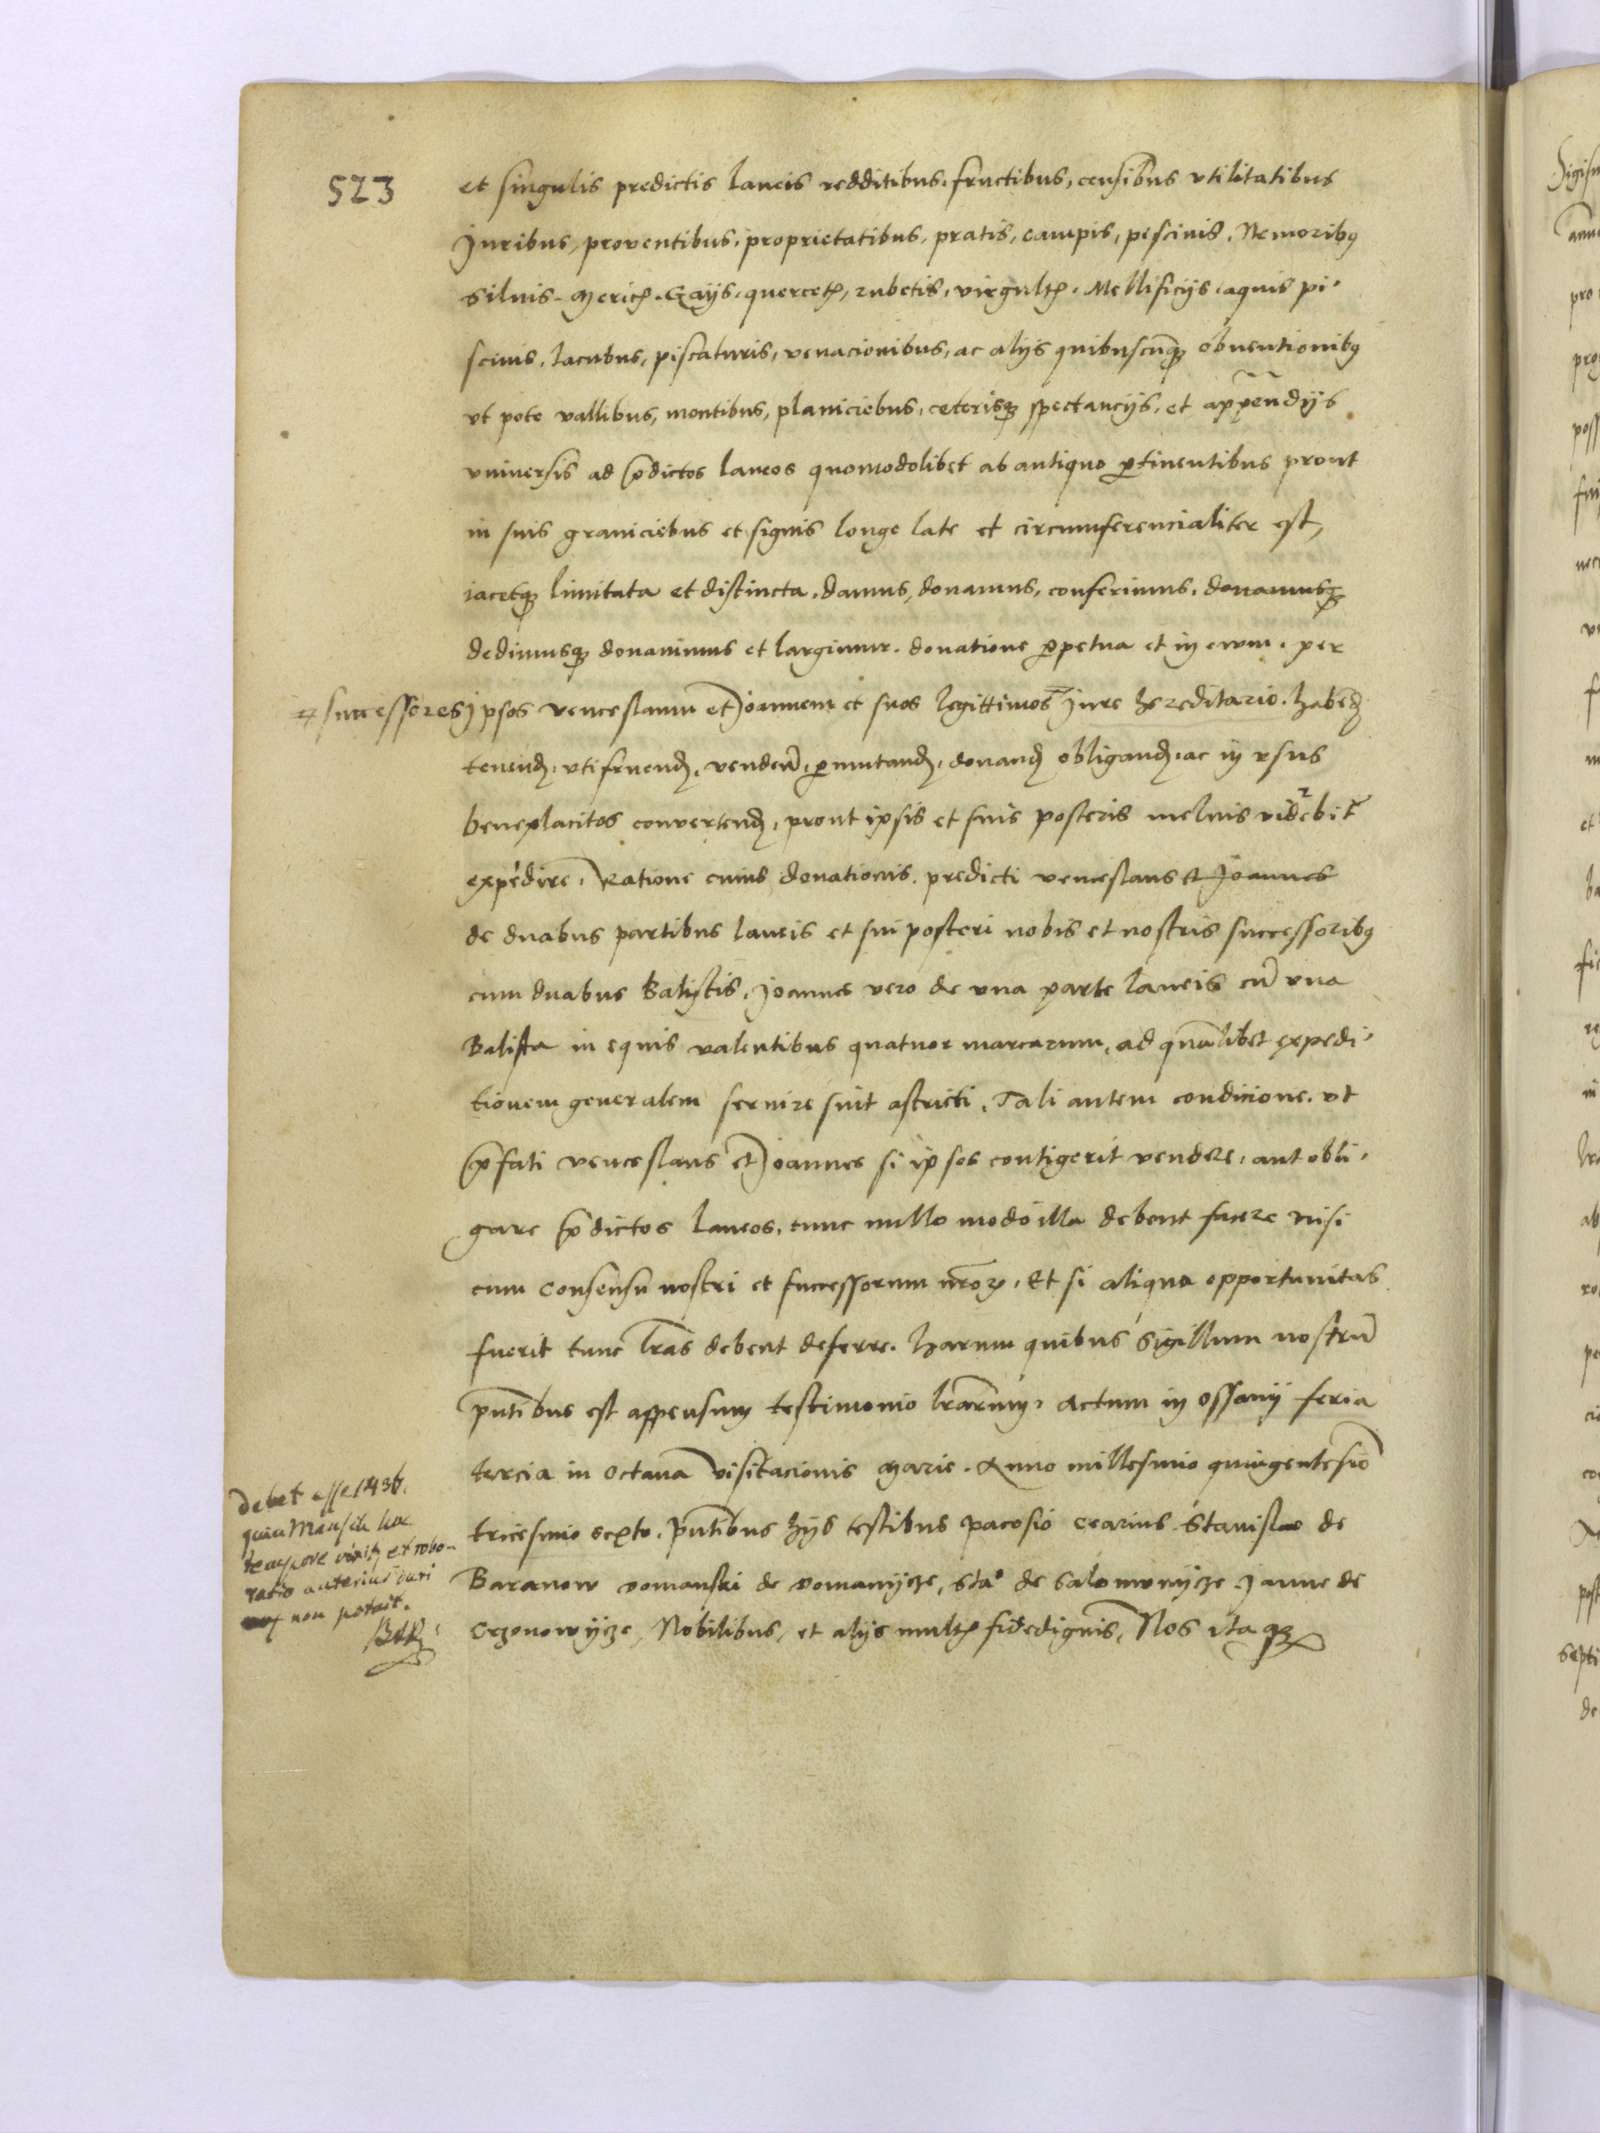 523
et singulis predictis laneis redditibus, fructibus, censibus vtilitatibus
Juribus, proventibus, proprietatibus, pratis, campis, pescuis, Nemoribꝫ
siluis, mericꝭ, Gays, quercetꝭ, rubetis, virgultꝭ, Mellificijs, aquis pi-
scinis, lacubus, piscaturis, venacionibus, ac alijs quibuscūqꝫ obuentionibꝫ
vt pote vallibus, montibus, planiciebus, ceterisqꝫ spectancijs, et appēndijs
vniuersis ad p̄dictos laneos quomodolibet ab antiquo ꝑtinentibus prout
in suis graniciebus et signis longe late et circumferencialiter est,
iacetqꝫ limitata et distincta, damus, donamus, conferimus, donamusqꝫ
dedimusqꝫ donauimus et largimur, donatione ꝑpetua et in ewm, per
successores
ipsos venceslaum et Joannem et suos legittimos Jure hereditario, habend
tenend, vtifruend, vendēn, ꝑmutand, donand obligand, ac in vsus
beneplacitos convertend, prout ipsis et suis posteris melius videbitr
expedire, Ratione cuius donationis, predicti venceslaus et Joannes
de duabus partibus laneis et sui posteri nobis et nostris successoribꝫ
cum duabus Balistis, Joannes vero de vna parte laneis cū vna
Balista in equis valentibus quatuor marcarum, ad quālibet expedi-
tionem generalem seruire sint astricti, Tali autem condicione, vt
p̄fati venceslaus et Joannes si ipsos contigerit vendere, aut obli-
gare p̄dictos laneos, tunc nullo modo illa debent facere nisi
cum consensu nostri et successorum nr̄oꝝ, Et si aliqua opportunitas
fuerit tunc lr̄as debent deferre, harum quibus sigillum nostrū
pn̄tibus est appensum testimonio lr̄arum, Actum in Ossanij feria
tercia in octaua visitacionis marie, Anno millesimo quingentesīo
tricesimo sexto, pn̄tibus hys testibus pacosio cearius Stanislao de
Baranow vomanski de vomanijcze, sta° de salomonijcze Janne de
Cczonowijcze, Nobilibus, et alijs multꝭ fidedignis, Nos itaqꝫ
Debet esse 1436.
quia hoc
tempore vixit et robo-
ratio anterius dari
non potuit.